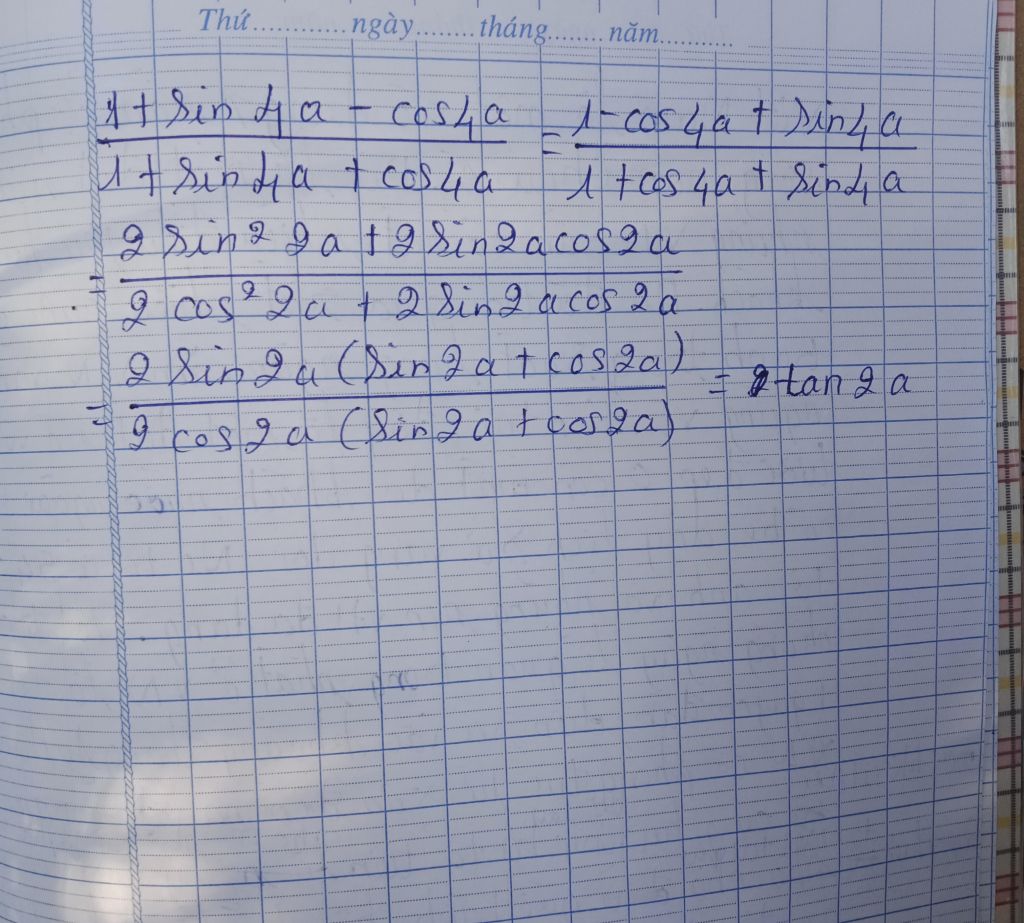 Thứ............ngày........tháng.......năm..........
(1 + sin 4a - cos4a)/(1 + sin 4a + cos4a) = (1 - cos 4a + sin 4a)/(1 + cos 4a + sin 4a)
= (2 sin² 2a + 2 sin 2a cos 2a)/(2 cos² 2a + 2 sin 2a cos 2a)
= (2 sin 2a (sin 2a + cos 2a))/(2 cos 2a (sin 2a + cos 2a)) = tan 2a